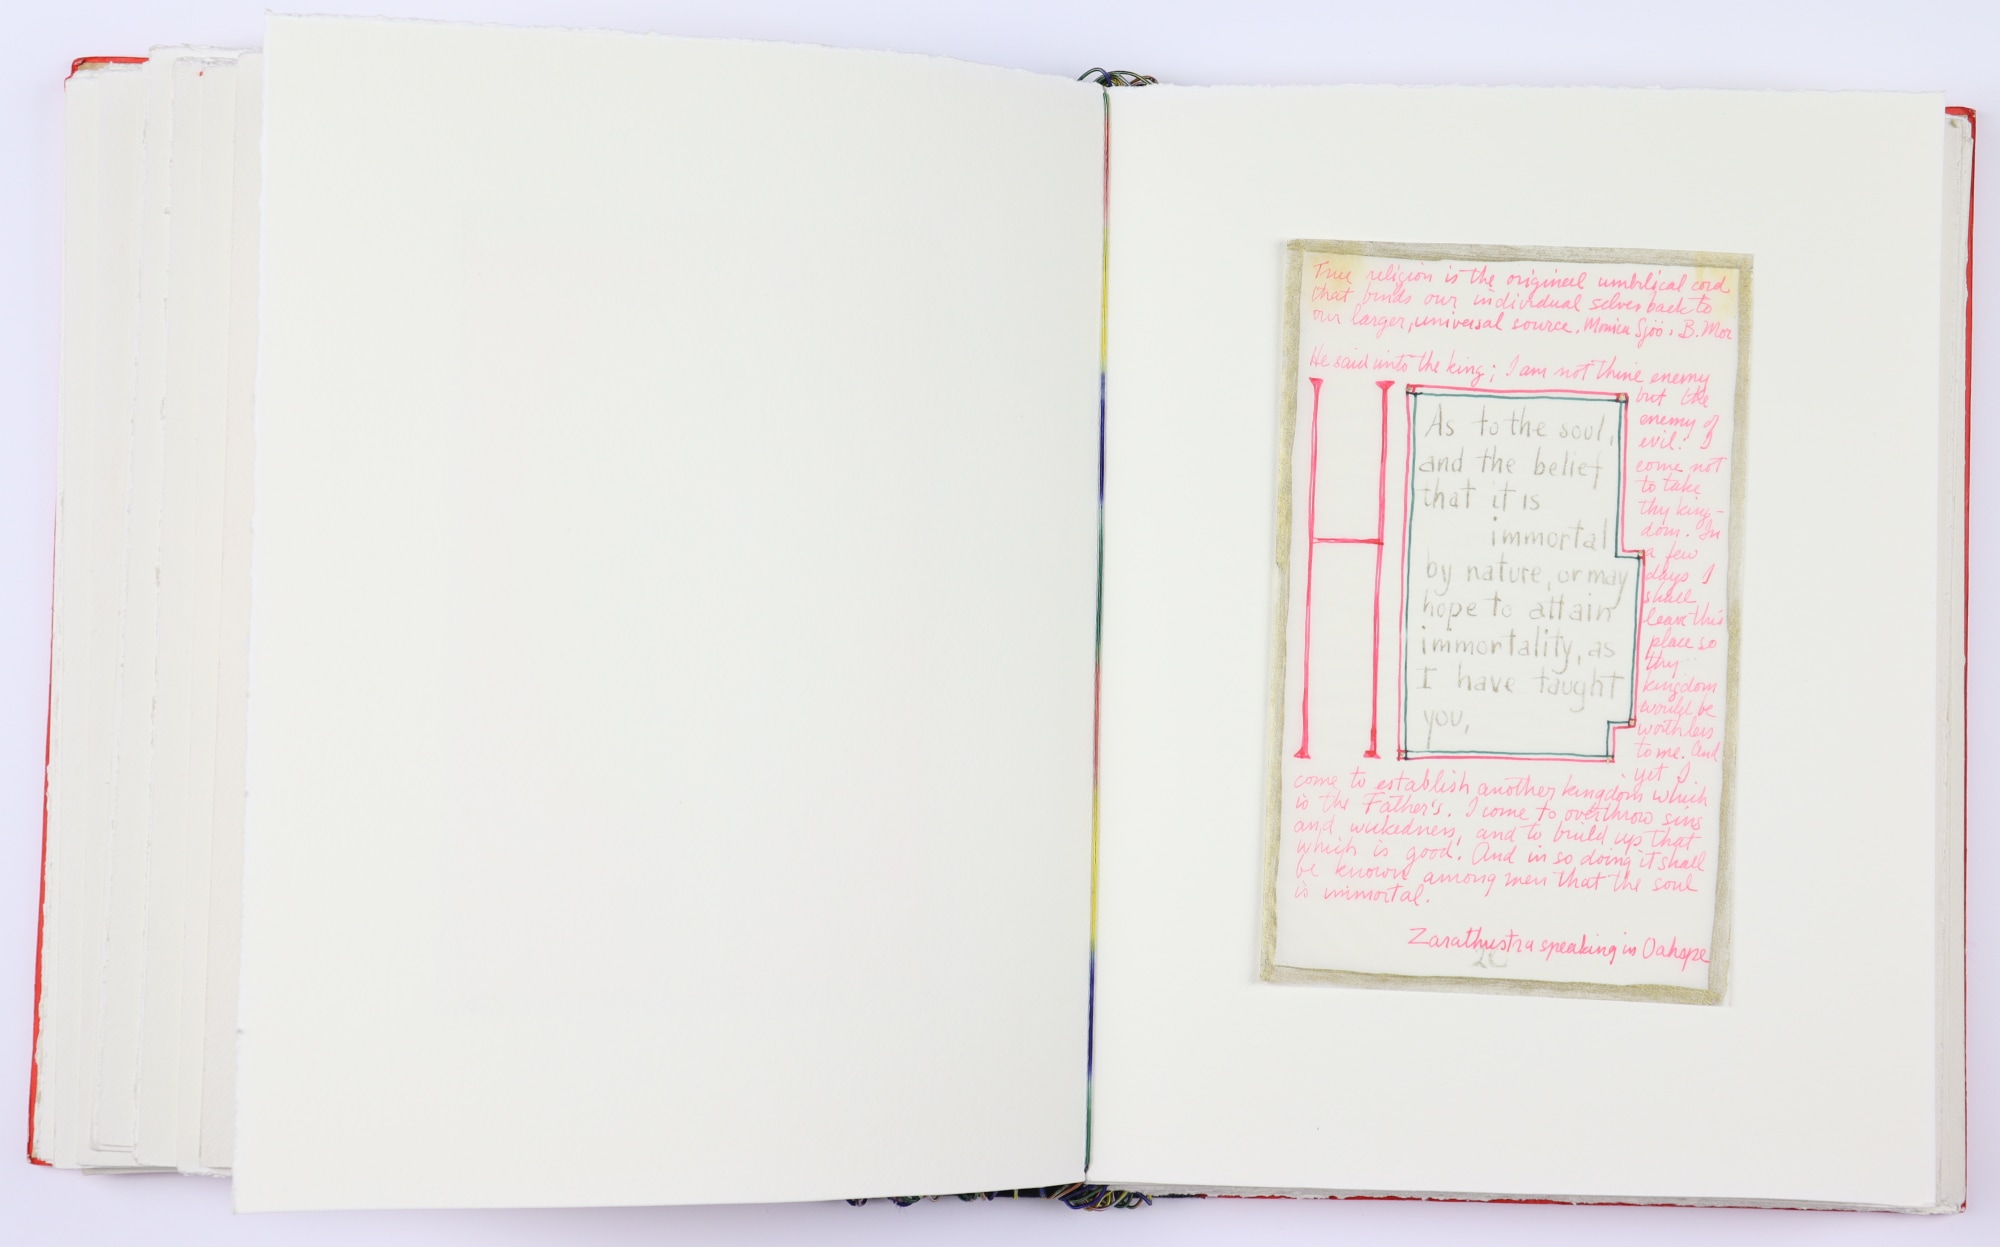 True religion is the original umbilical cord
that binds our individual selves back to
our larger, universal source. Monica Sjöö, B. Mor
He said unto the king; I am not thine enemy
but the
enemy of
evil. I
come not
to take
thy king-
dom. In
a few
days I
shall
leave this
place so
thy
kingdom
would be
worthless
to me. And
yet I
come to establish another kingdom which
is the Father's. I come to overthrow sins
and wickedness, and to build up that
which is good. And in so doing it shall
be known among men that the soul
is immortal.
H
As to the soul,
and the belief
that it is
immortal
by nature, or may
hope to attain
immortality, as
I have taught
you,
Zarathustra speaking in Oahspe